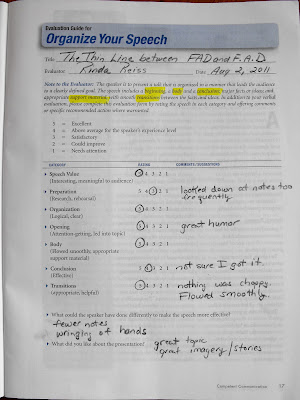 Evaluation Guide for
Organize Your Speech
Title The Thin Line between FAD and F.A.D.
Evaluator Rinda Reiss Date Aug 2, 2011
Note to the Evaluator: The speaker is to present a talk that is organized in a manner that leads the audience
to a clearly defined goal. The speech includes a beginning, a body and a conclusion; major facts or ideas; and
appropriate support material, with smooth transitions between the ideas and facts. In addition to your verbal
evaluation, please complete this evaluation form by rating the speech in each category and offering comments
or specific recommendations where warranted.
5 = Excellent
4 = Above average for the speaker's experience level
3 = Satisfactory
2 = Could improve
1 = Needs attention
CATEGORY RATING COMMENTS/SUGGESTIONS
▸ Speech Value 5 4 3 2 1
(Interesting, meaningful to audience)
▸ Preparation 5 4 3 2 1 looked down at notes too
(Research, rehearsal) frequently
▸ Organization 5 4 3 2 1
(Logical, clear)
▸ Opening 5 4 3 2 1 great humor
(Attention-getting, led into topic)
▸ Body 5 4 3 2 1
(Flowed smoothly, appropriate
support material)
▸ Conclusion 5 4 3 2 1 not sure I got it.
(Effective)
▸ Transitions 5 4 3 2 1 nothing was choppy.
(appropriate, helpful) Flowed smoothly.
▸ What could the speaker have done differently to make the speech more effective?
fewer notes
wringing of hands
▸ What did you like about the presentation? great topic
great imagery/stories
Competent Communication 17